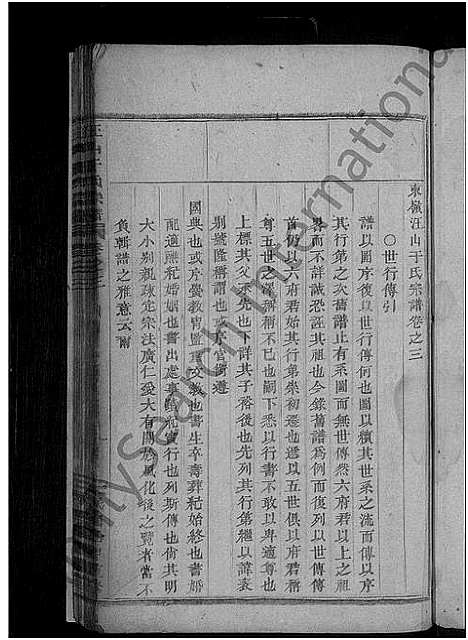 東嶺汪山于氏宗譜卷之三
〇世行傳引
譜以圖序復以世行傳何也圖以積其世系之流而傳以序
其行第之次舊譜止有系圖而無世傳然六府君以上之祖
畧而不詳誠恐誣其祖也今錄舊譜為例而復列以世傳傳
首仍以六府君始其行第崇初遷也遞以五世俱以府君六
尊五世之深稱稱不已也嗣下悉以行書不敢以卑適尊也
上標其父承先也下詳其子裕後也先列其行第繼以諱表
別號隆稱謂也或
官銜遵
國典也或片
重文
也書生卒壽葬紀始終也書婚
配適
紀婚姻也書出處事
紀實行也列斯傳也尚其明
大小別親疎定宗法廣仁愛大有關於風化後之覽者當不
負輯譜之雅意云爾
MySearch International